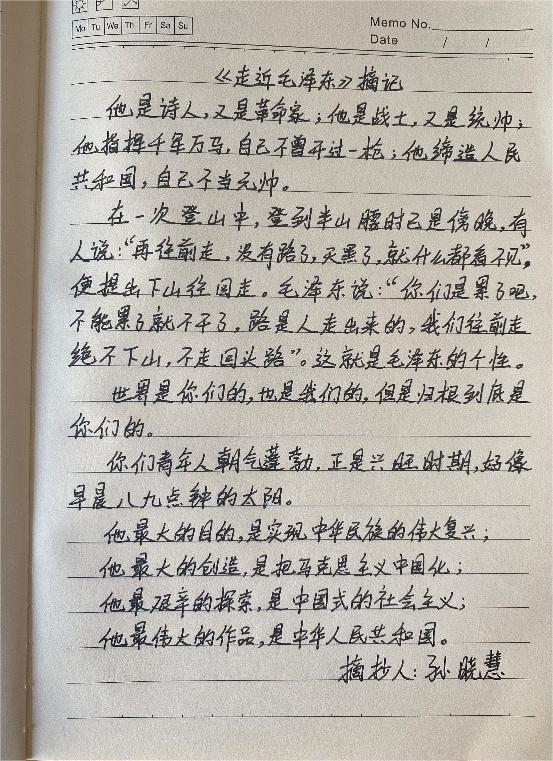 Mo Tu We Th Fr Sa Su
Memo No.
Date / /
《走近毛泽东》摘记
他是诗人,又是革命家;他是战士,又是统帅;
他指挥千军万马,自己不曾开过一枪;他缔造人民
共和国,自己不当元帅。
在一次登山中,登到半山腰时已是傍晚,有
人说:“再往前走,没有路了,天黑了,就什么都看不见”,
便提出下山往回走。毛泽东说:“你们是累了吧,
不能累了就不干了,路是人走出来的,我们往前走
绝不下山,不走回头路”。这就是毛泽东的个性。
世界是你们的,也是我们的,但是归根到底是
你们的。
你们青年人朝气蓬勃,正是兴旺时期,好像
早晨八九点钟的太阳。
他最大的目的,是实现中华民族的伟大复兴;
他最大的创造,是把马克思主义中国化;
他最艰辛的探索,是中国式的社会主义;
他最伟大的作品,是中华人民共和国。
摘抄人:孙晓慧